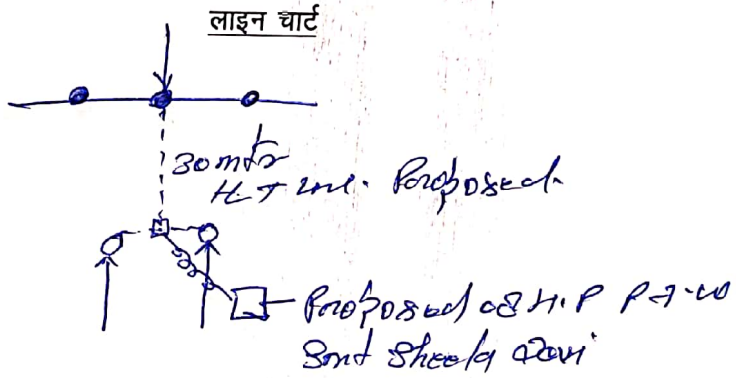 लाइन चार्ट
30 mtr
H.T line. Proposed.
Proposed 08 H.P P.T.W
Smt Sheela Devi